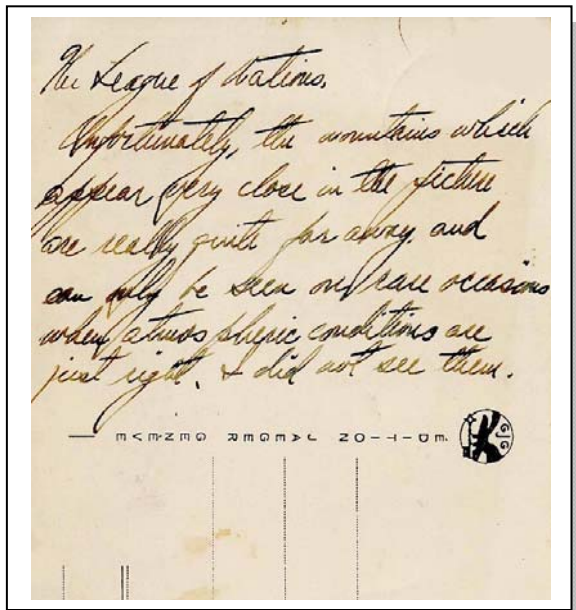 The League of Nations.
Unfortunately, the mountains which
appear very close in the picture
are really quite far away and
can only be seen on rare occasions
when atmospheric conditions are
just right. I did not see them.
ÉDITION JAEGER GENÈVE
GJG